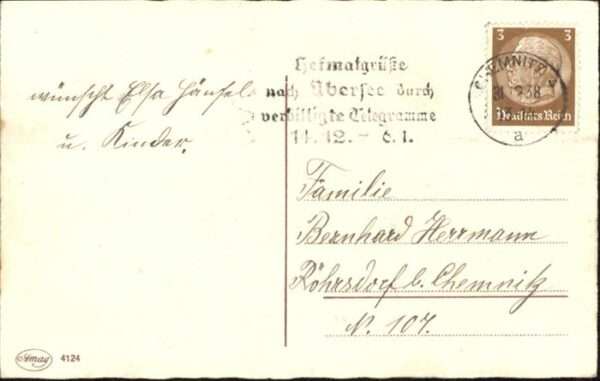 wünscht Elsa Hänsel
u. Kinder.
Heimatgrüße
nach Übersee durch
verbilligte Telegramme
14.12. - 6.1.
3 3
Deutsches Reich
CHEMNITZ
31. 12.38
a
Familie
Bernhard Herrmann
Röhrsdorf b. Chemnitz
N. 107.
Amag 4124